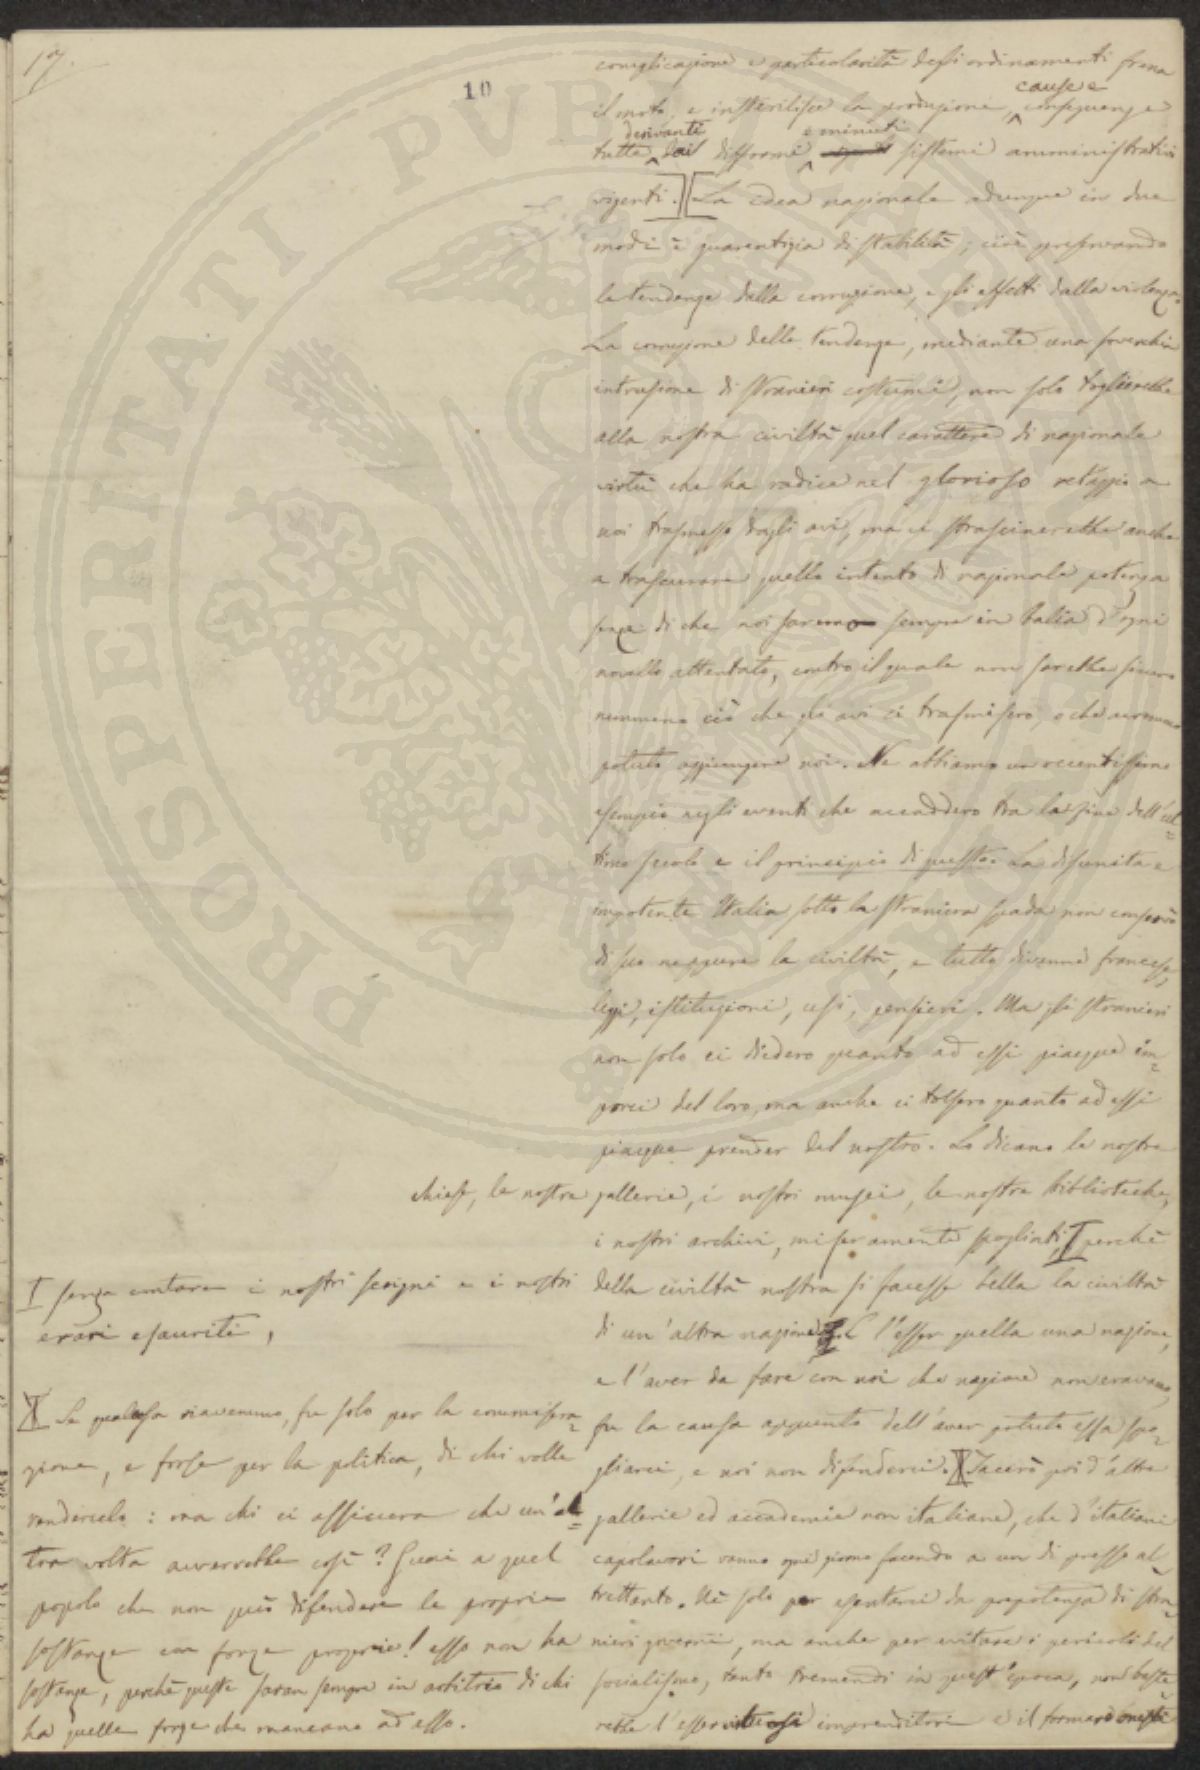 17.
10
complicazione e particolarità degli ordinamenti frena
il moto, e insterilisce la produzione, cause e conseguenze
tutte derivanti dai difformi e minuti sistemi amministrativi
vigenti. La idea nazionale adunque in due
modi è guarentigia di stabilità; cioè preservando
le tendenze dalla corruzione, e gli effetti dalla violenza.
La corruzione delle tendenze, mediante una soverchia
intrusione di stranieri costumi, non solo toglierebbe
alla nostra civiltà quel carattere di nazionale
virtù che ha radice nel glorioso retaggio a
noi trasmesso dagli avi, ma ci strascinerebbe anche
a trascurare quello intento di nazionale potenza
senza di che noi saremo sempre in balia d'ogni
novello attentato, contro il quale non sarebbe sicuro
nemmeno ciò che gli avi ci trasmisero, o che avremmo
potuto aggiungere noi. Ne abbiamo un recentissimo
esempio negli eventi che accaddero tra la fine dell'ul=
timo secolo e il principio di questo. La disunita e
impotente Italia sotto la straniera spada non conservò
di suo neppure la civiltà, e tutto divenne francese,
leggi, istituzioni, usi, pensieri. Ma gli stranieri
non solo ci diedero quanto ad essi piacque im=
porci del loro, ma anche ci tolsero quanto ad essi
piacque prender del nostro. Lo dicano le nostre
chiese, le nostre gallerie, i nostri musei, le nostre biblioteche,
i nostri archivi, miseramente spogliati, perchè
della civiltà nostra si facesse bella la civiltà
di un'altra nazione. E l'esser quella una nazione,
e l'aver da fare con noi che nazione non eravamo,
fu la causa appunto dell'aver potuto essa spo=
gliarci, e noi non difenderci. Tacerò poi d'altre
gallerie ed accademie non italiane, che d'italiani
capolavori vanno ogni giorno facendo a un di presso al=
trettanto. Nè solo per esentarci da prepotenza di stra=
nieri governi, ma anche per evitare i pericoli del
socialismo, tanto tremendi in quest'epoca, non baste=
rebbe l'esser virtuosi imprenditori e il formare onesti
senza contare i nostri scrigni e i nostri
erari esauriti,
Se qualcosa riavemmo, fu solo per la commisera=
zione, e forse per la politica, di chi volle
rendercelo: ma chi ci assicura che un'al=
tra volta avverrebbe così? Guai a quel
popolo che non può difendere le proprie
sostanze con forze proprie! esso non ha
sostanze, perchè queste saran sempre in arbitrio di chi
ha quelle forze che mancano ad esso.
PROSPERITATI PVBLICAE